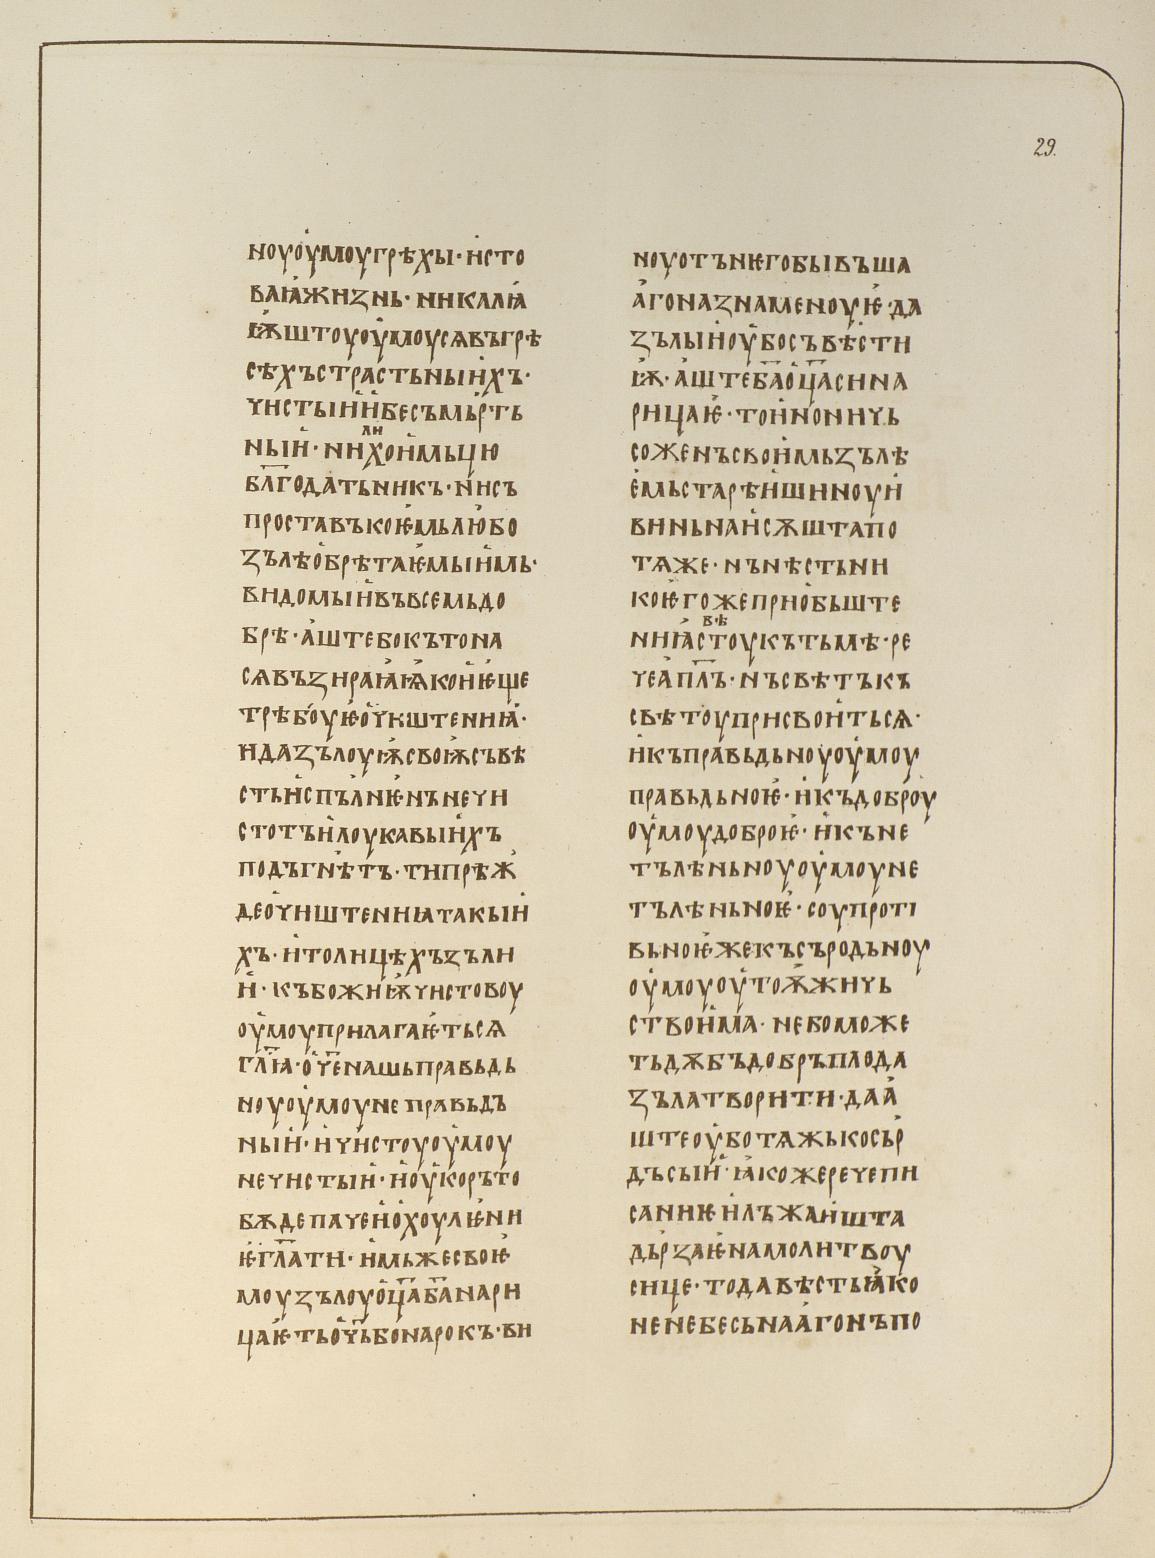 29.
ноуоумоугрѣхы·исто
ваꙗжизнь·никалиꙗ
ѭштоуоумоусѧвъгрѣ
сѣхъстрастьныихъ·
чистыиибесъмьрть
ныи·нихоимьцю
ли
благодатьникъ·нисъ
проставъкоѥмьлюбо
зълѣобрѣтаѥмыимь·
видомыивъвсемьдо
брѣ·аштебокътона
сѧвъзираꙗꙗкоиѥще
трѣбоуѥочиштениꙗ·
идазълоуѭсвоѭсъвѣ
стьиспълнѥ·нънечи
стотъилоукавыихъ
подъгнѣтъ·типрѣж
деочиштениꙗтакыи
хъ·итолицѣхъзъли
и·къбожиѭчистовоу
оумоуприлагаѥтьсѧ
глꙗ·оченашьправьдь
ноуоумоуне правьдъ
ныи·ичистоуоумоу
нечистыи·иоукоръто
бѫдепачеиохоулѥни
ѥглати·имьжесвоѥ
моузълоуоцабанари
цаѥтьочьбонарокъ·ви
ноуотънѥгобывъша
агоназнаменоуѥ·да
зълыиоубосъвѣсти
ѭ·аштебаоцасина
рицаѥ·тоиноничь
соженъсвоимьзълѣ
емьстарѣишиноуи
виньнаисѫштапо
тѧже·нънѣстьни
коѥгожеприобьште
ниꙗстоукътьмѣ·ре
вѣ
чеаплъ·нъсвѣтъкъ
свѣтоуприсвоитьсѧ·
икъправьдьноуоумоу
правьдьноѥ·икъдоброу
оумоудоброѥ·икъне
тълѣньноуоумоуне
тълѣньноѥ·соупроті
вьноѥжекъсъродьноу
оумоуоутоѫжичь
ствоима·неможе
тьдѫбъдобръплода
зълатворити·даа
штеоуботѧжькосьр
дъсыи·ꙗкожеречепи
саниѥилъжаишта
дьрзаѥнамолитвоу
сице·тодавѣстьꙗко
ненебесьнаагонъпо